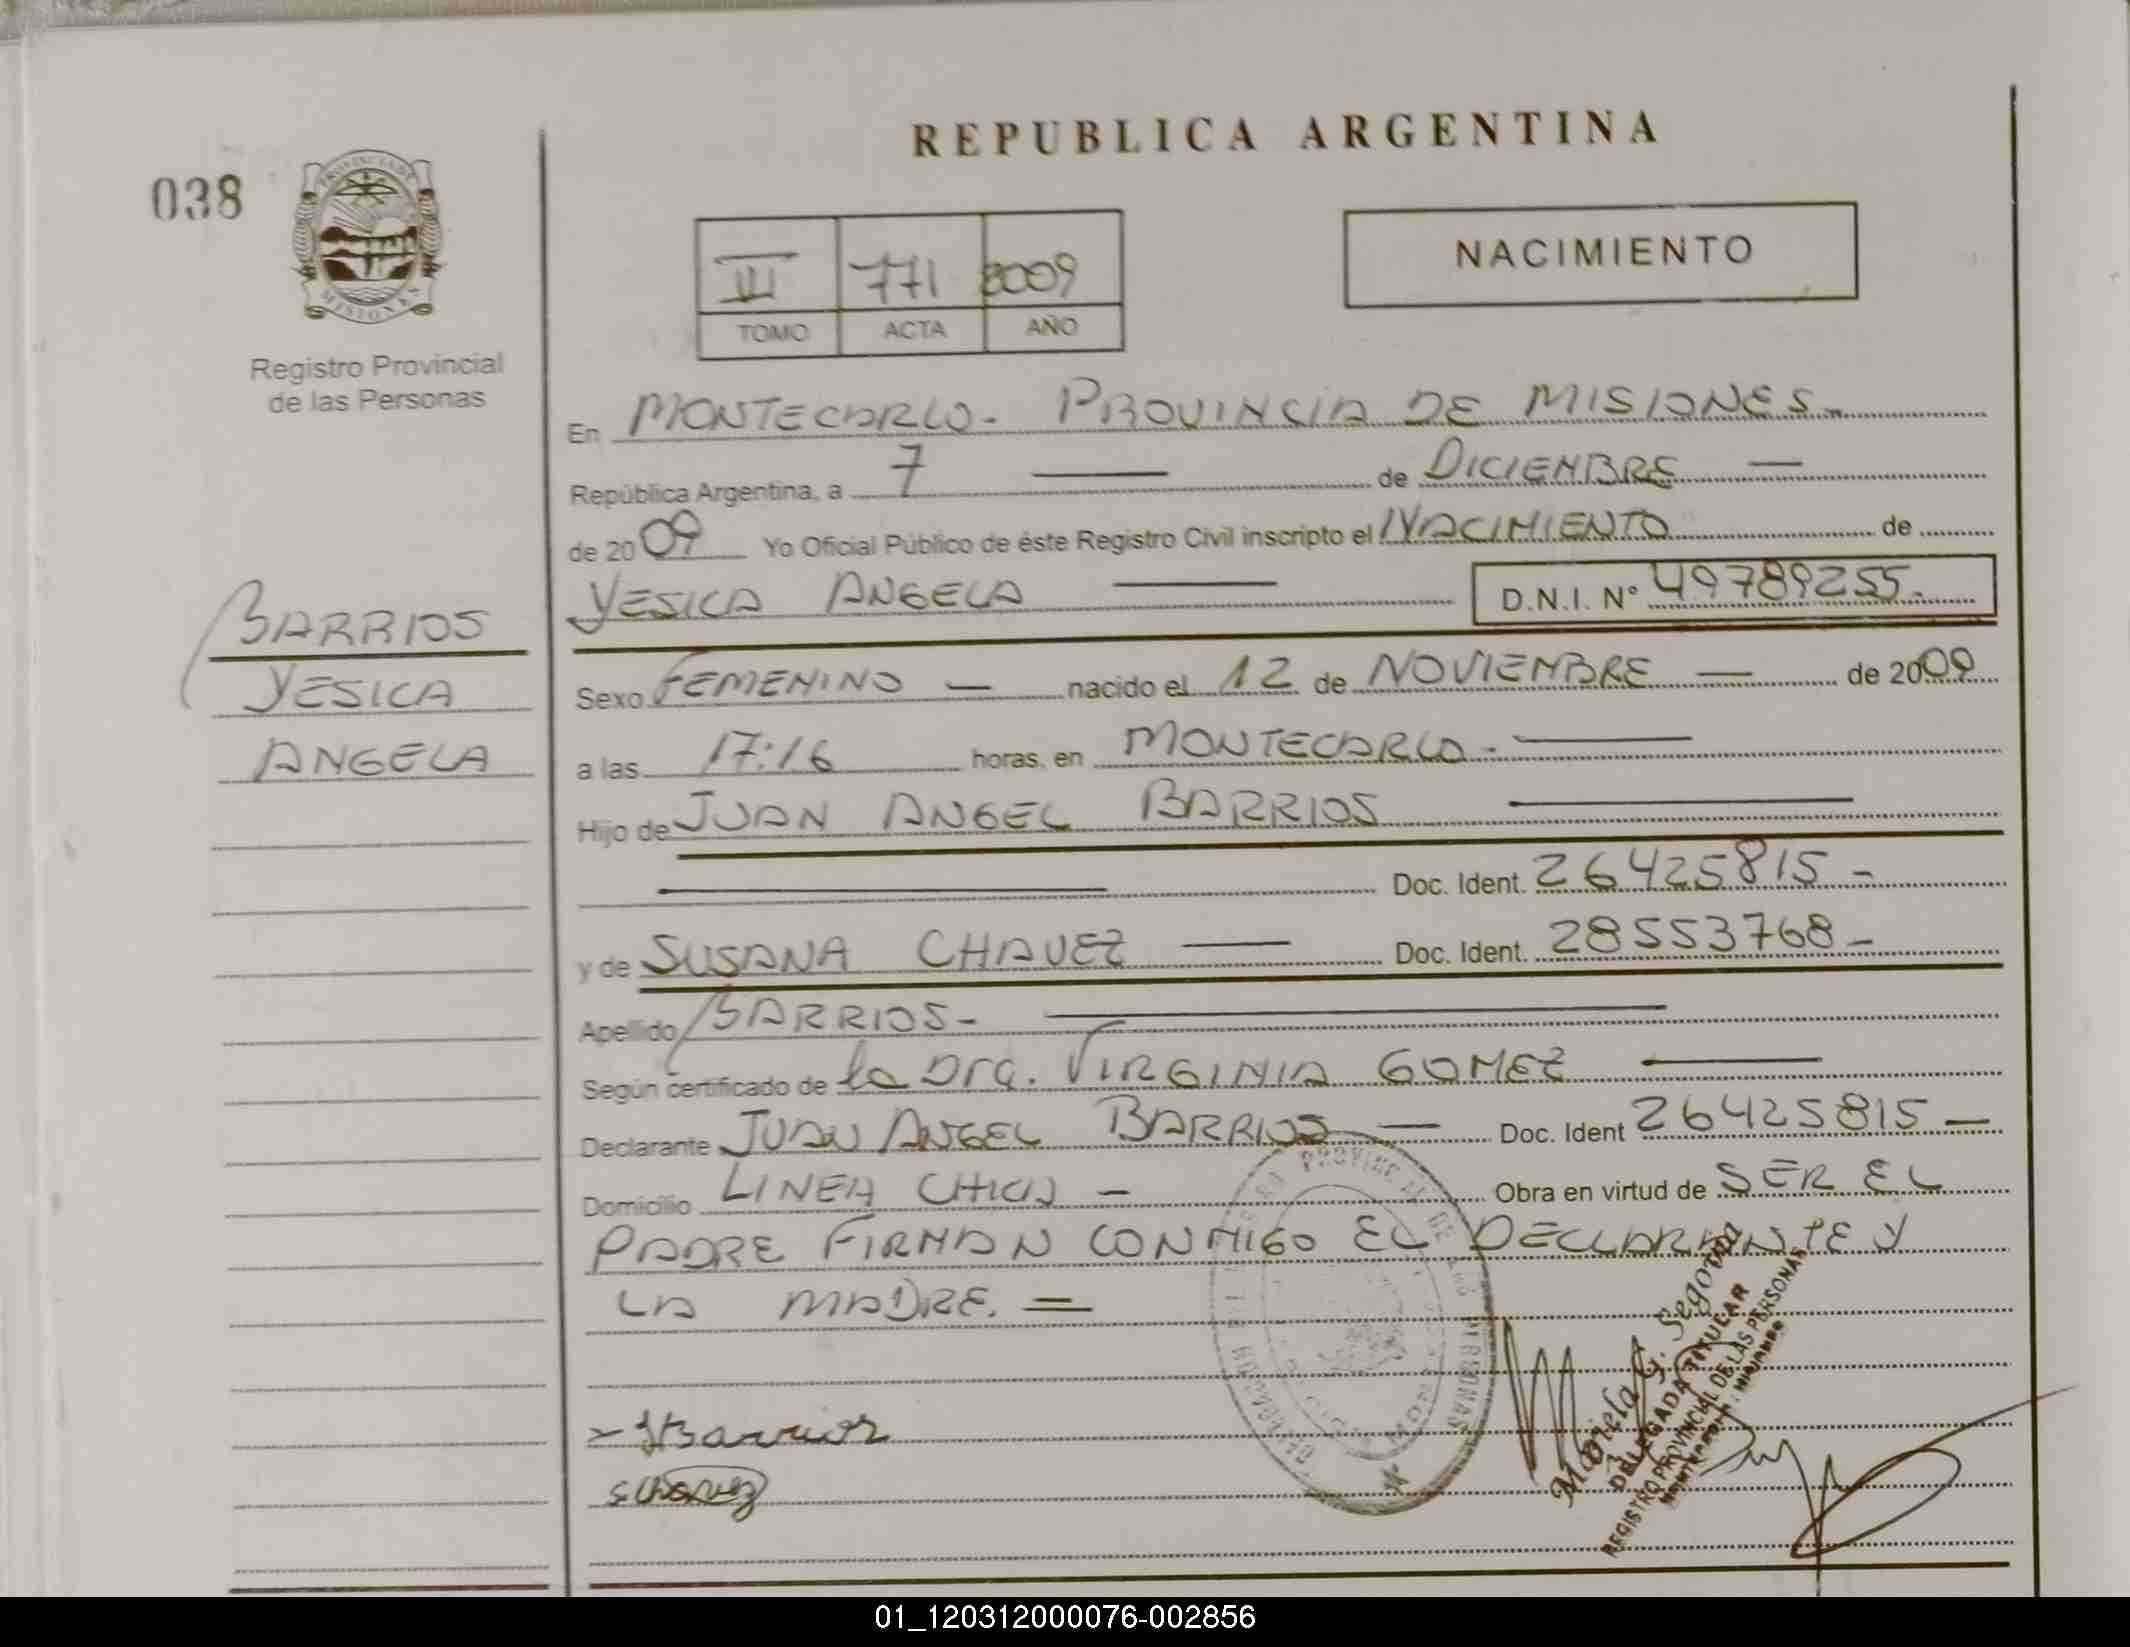 REPUBLICA ARGENTINA
038
PROVINCIA DE
MISIONES
Registro Provincial
de las Personas
III 771 2009
TOMO ACTA AÑO
NACIMIENTO
En MONTECARLO - PROVINCIA DE MISIONES -
República Argentina, a 7 — de DICIEMBRE —
de 2009 Yo Oficial Público de éste Registro Civil inscripto el NACIMIENTO de
YESICA ANGELA — D.N.I. N° 49789255.
BARRIOS
YESICA
ANGELA
Sexo FEMENINO — nacido el 12 de NOVIEMBRE — de 2009
a las 17:16 horas, en MONTECARLO - —
Hijo de JUAN ANGEL BARRIOS —
— Doc. Ident. 26425815 -
y de SUSANA CHAVEZ — Doc. Ident. 28553768 -
Apellido BARRIOS - —
Según certificado de la Dra. VIRGINIA GOMEZ —
Declarante JUAN ANGEL BARRIOS — Doc. Ident 26425815 —
Domicilio LINEA CHICA — Obra en virtud de SER EL
PADRE FIRMAN CONMIGO EL DECLARANTE Y
LA MADRE. =
Mariela G. Segovia
DELEGADA TITULAR
REGISTRO PROVINCIAL DE LAS PERSONAS
- JBarrios
SChavez
01_120312000076-002856